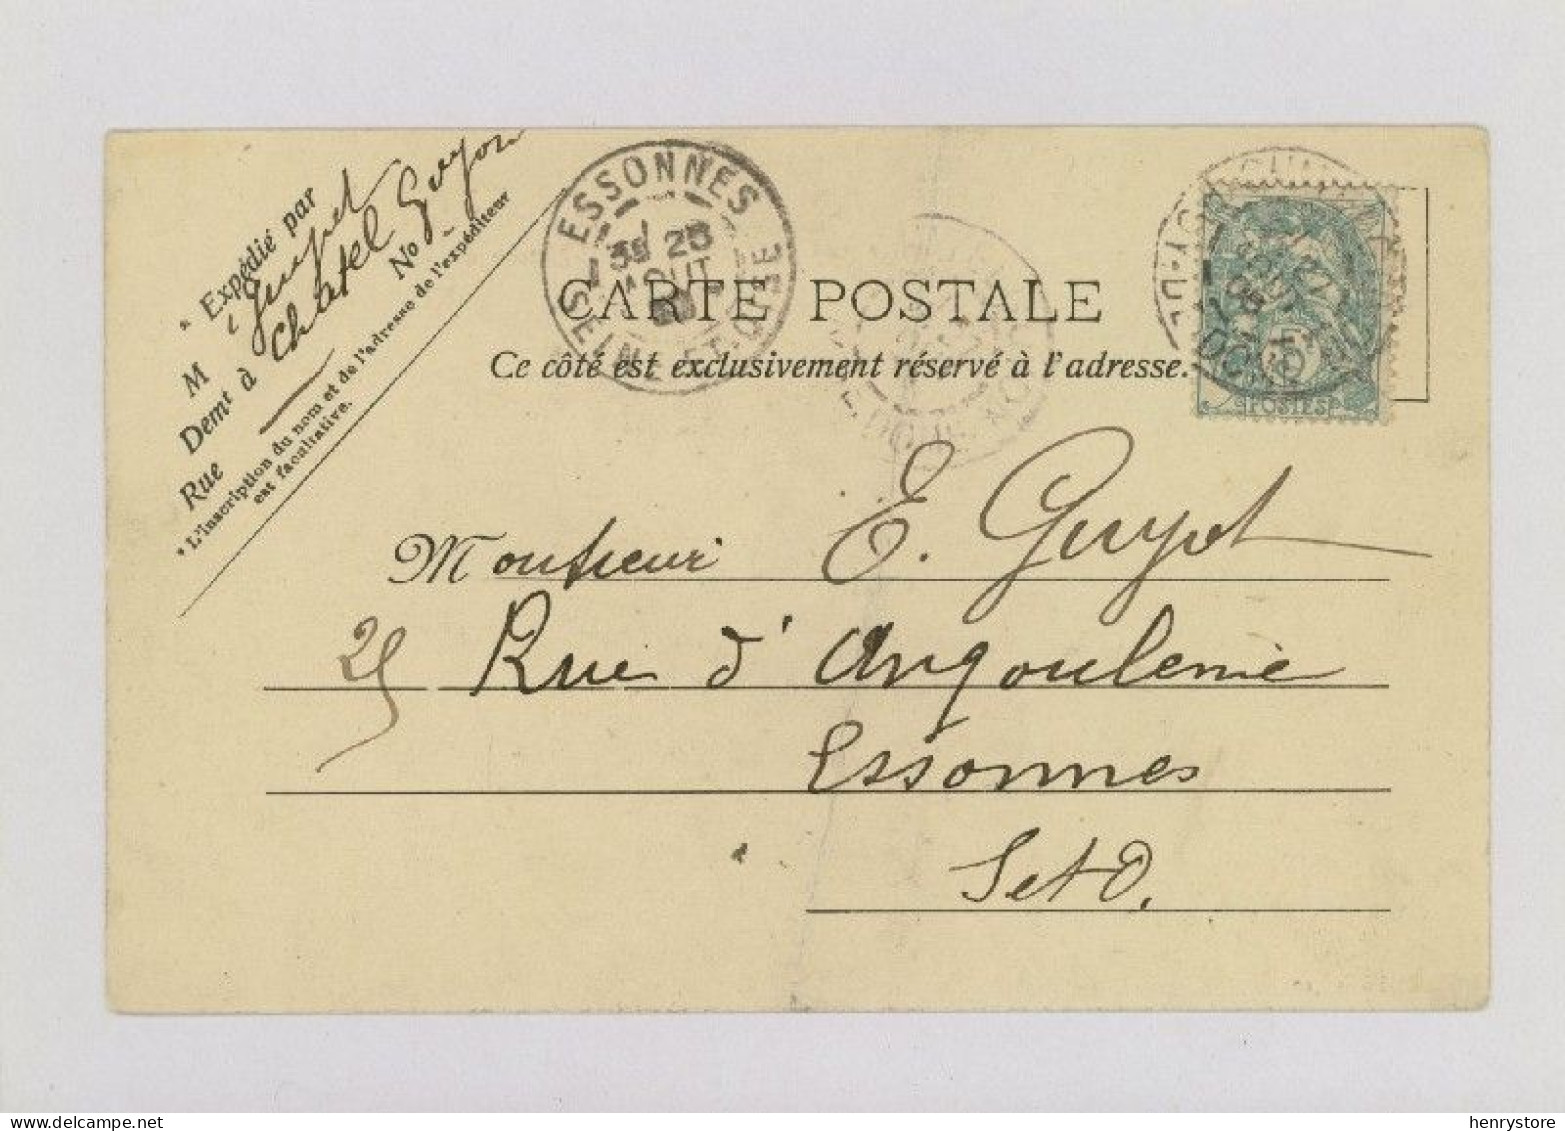 * Expédié par
M Guyot
Demt à Chatel Guyon
Rue — No -
* L'inscription du nom et de l'adresse de l'expéditeur
est facultative.
ESSONNES
25
AOUT
SEINE-ET-OISE
CARTE POSTALE
Ce côté est exclusivement réservé à l'adresse.
POSTES
Monsieur E. Guyot
25 Rue d'Angouleme
Essonnes
S et O.
henrystore